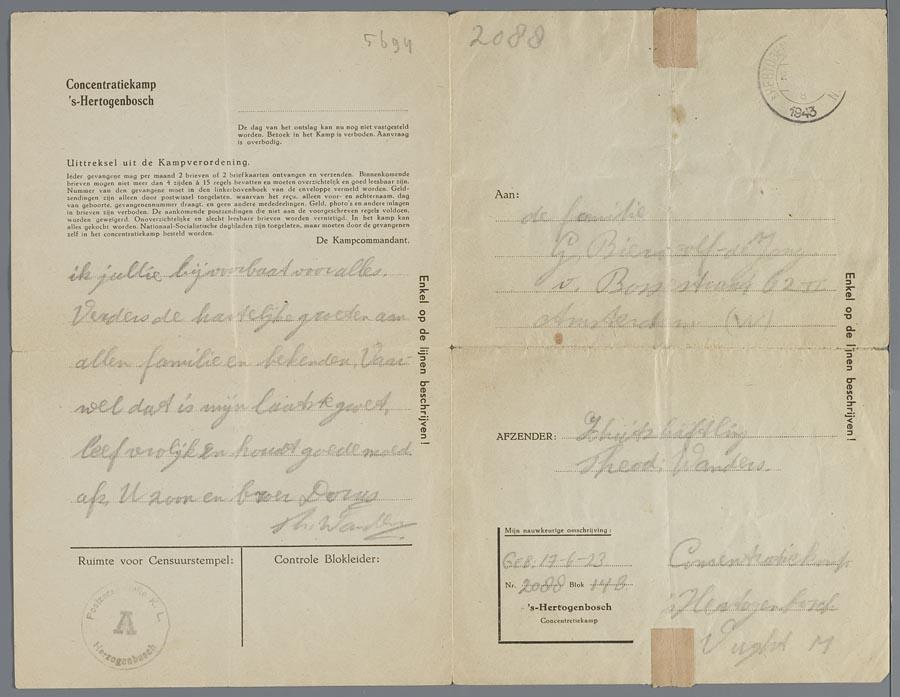 5694
Concentratiekamp
's-Hertogenbosch
De dag van het ontslag kan nu nog niet vastgesteld
worden. Bezoek in het Kamp is verboden. Aanvraag
is overbodig.
Uittreksel uit de Kampverordening.
Ieder gevangene mag per maand 2 brieven of 2 briefkaarten ontvangen en verzenden. Binnenkomende
brieven mogen niet meer dan 4 zijden à 15 regels bevatten en moeten overzichtelijk en goed leesbaar zijn.
Nummer van den gevangene moet in den linkerbovenhoek van de enveloppe vermeld worden. Geld-
zendingen zijn alleen door postwissel toegelaten, waarvan het reçu, alleen voor- en achternaam, dag
van geboorte, gevangenennummer draagt, en geen andere mededeelingen. Geld, photo's en andere inlagen
in brieven zijn verboden. De aankomende postzendingen die niet aan de voorgeschreven regels voldoen,
worden geweigerd. Onoverzichtelijke en slecht leesbare brieven worden vernietigd. In het kamp kan
alles gekocht worden. Nationaal-Socialistische dagbladen zijn toegelaten, maar moeten door de gevangenen
zelf in het concentratiekamp besteld worden.
De Kampcommandant.
ik jullie bijvoorbaat voor alles.
Verders de hartelijke groeten aan
allen familie en bekenden. Vaar
wel dat is mijn laatste groet,
leef vrolijk en houdt goede moed
afz. U zoon en broer Dorus
Th. Wanders
Enkel op de lijnen beschrijven!
Ruimte voor Censuurstempel:
Controle Blokleider:
K. L.
A
Herzogenbosch
2088
1943
Aan:
de familie
G. Bierwolf-de Jong
v. Bossestraat 62 III
Amsterdam (W)
Enkel op de lijnen beschrijven!
AFZENDER:
Schutzhäftling
Theod. Wanders.
Mijn nauwkeurige omschrijving:
Geb. 17-6-23
Nr. 2088 Blok 14B
's-Hertogenbosch
Concentratiekamp
Concentratiekamp
's Hertogenbosch
Vught M